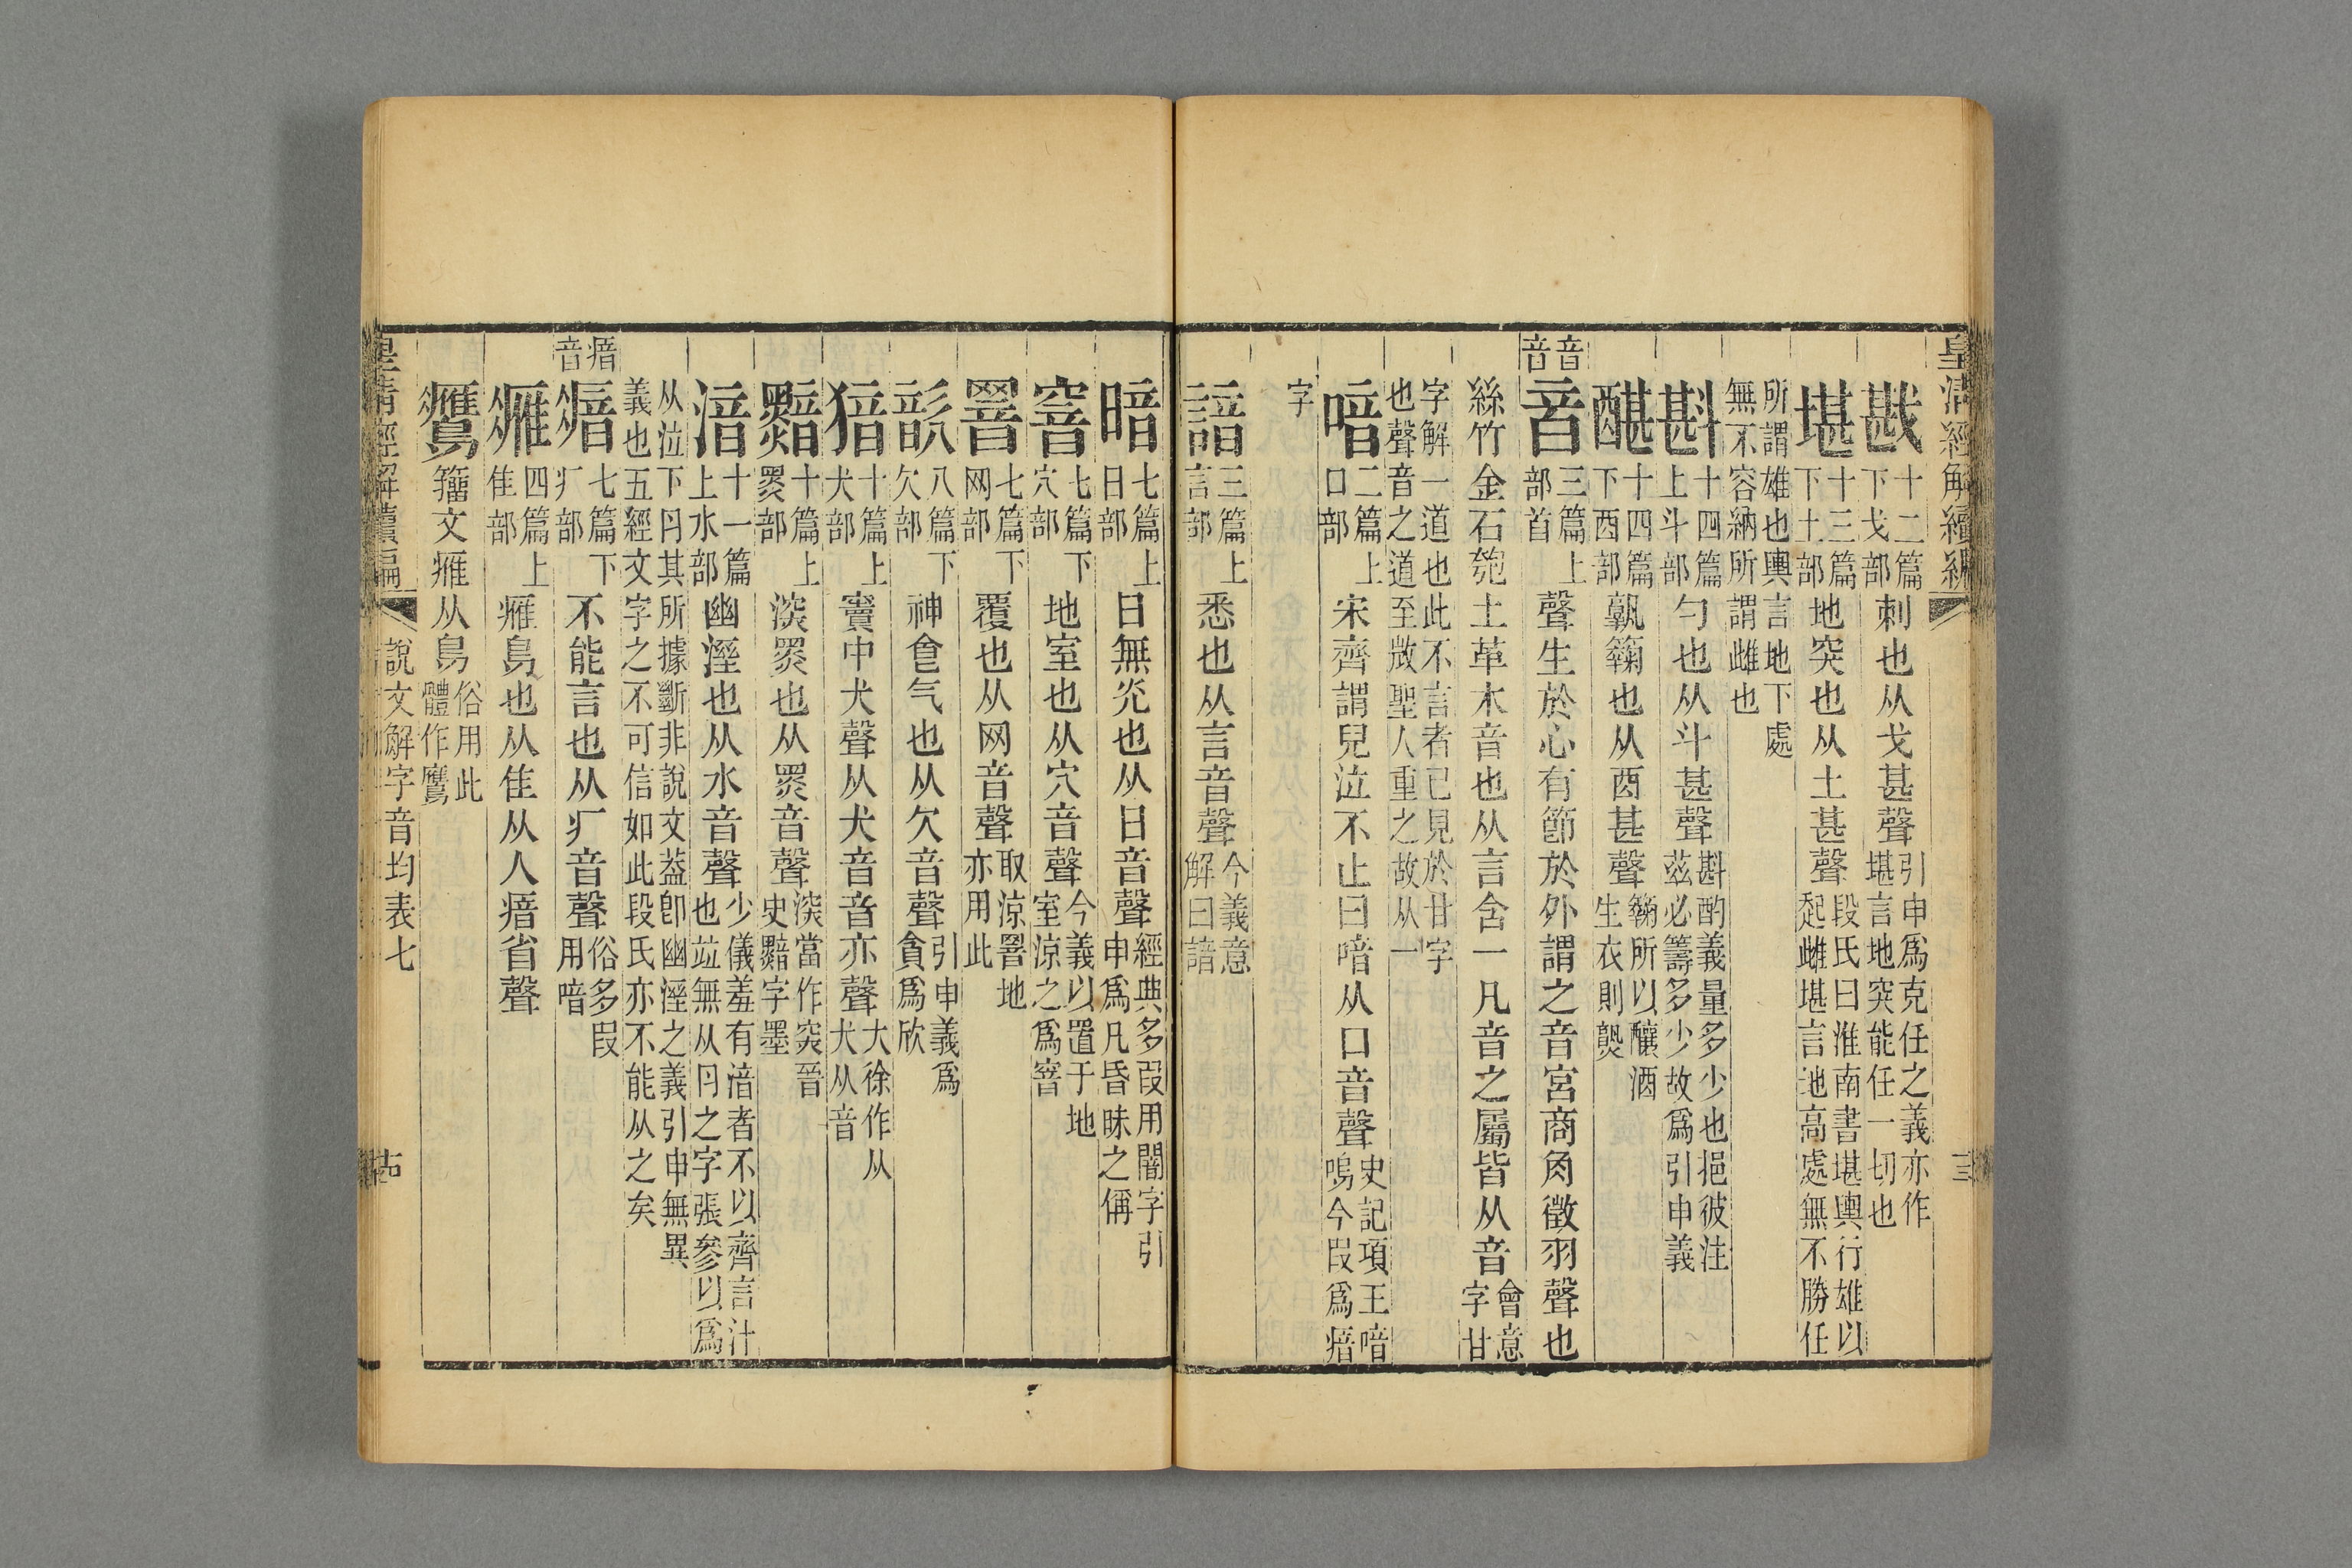 皇清經解續編
戡十二篇下戈部刺也从戈甚聲引申爲克任之義亦作堪言地突能任一切也
堪十三篇下土部地突也从土甚聲段氏曰淮南書堪輿行雄以起雌堪言地高處無不勝任
所謂雄也輿言地下處無不容納所謂雌也
斟十四篇上斗部勺也从斗甚聲斟酌義量多少也挹彼注茲必籌多少故爲引申義
醓十四篇下酉部孰籟也从酉甚聲籟所以釀酒生衣則爂
音音
音三篇上部首聲生於心有節於外謂之音宮商角徵羽聲也
絲竹金石匏土革木音也从言含一凡音之屬皆从音會意字甘
字解一道也此不言者已見於甘字也聲音之道至𢼸聖人重之故从一
喑二篇上口部宋齊謂兒泣不止曰喑从口音聲史記項王喑嗚今叚爲瘖
字
諳三篇上言部悉也从言音聲今義意解曰諳
暗七篇上日部日無光也从日音聲經典多叚用闇字引申爲凡昏昧之偁
窨七篇下穴部地室也从穴音聲今義以置于地室涼之爲窨
罯七篇下网部覆也从网音聲取涼罯地亦用此
歆八篇下欠部神食气也从欠音聲引申義爲貪爲欣
猎十篇上犬部竇中犬聲从犬音音亦聲大徐作从犬从音
黯十篇上黑部深黑也从黑音聲深當作突晉史黯字墨
湆十一篇上水部幽溼也从水音聲少儀羞有湆者不以齊言汁也竝無从肉之字張參以爲
从泣下肉其所據斷非說文葢卽幽溼之義引申無異義也五經文字之不可信如此段氏亦不能从之矣
瘖音
瘖七篇下疒部不能言也从疒音聲俗多叚用喑
雁四篇上隹部雁鳥也从隹从人瘖省聲
鷹籒文雁从鳥俗用此體作鷹
皇清經解續編 說文解字音均表七